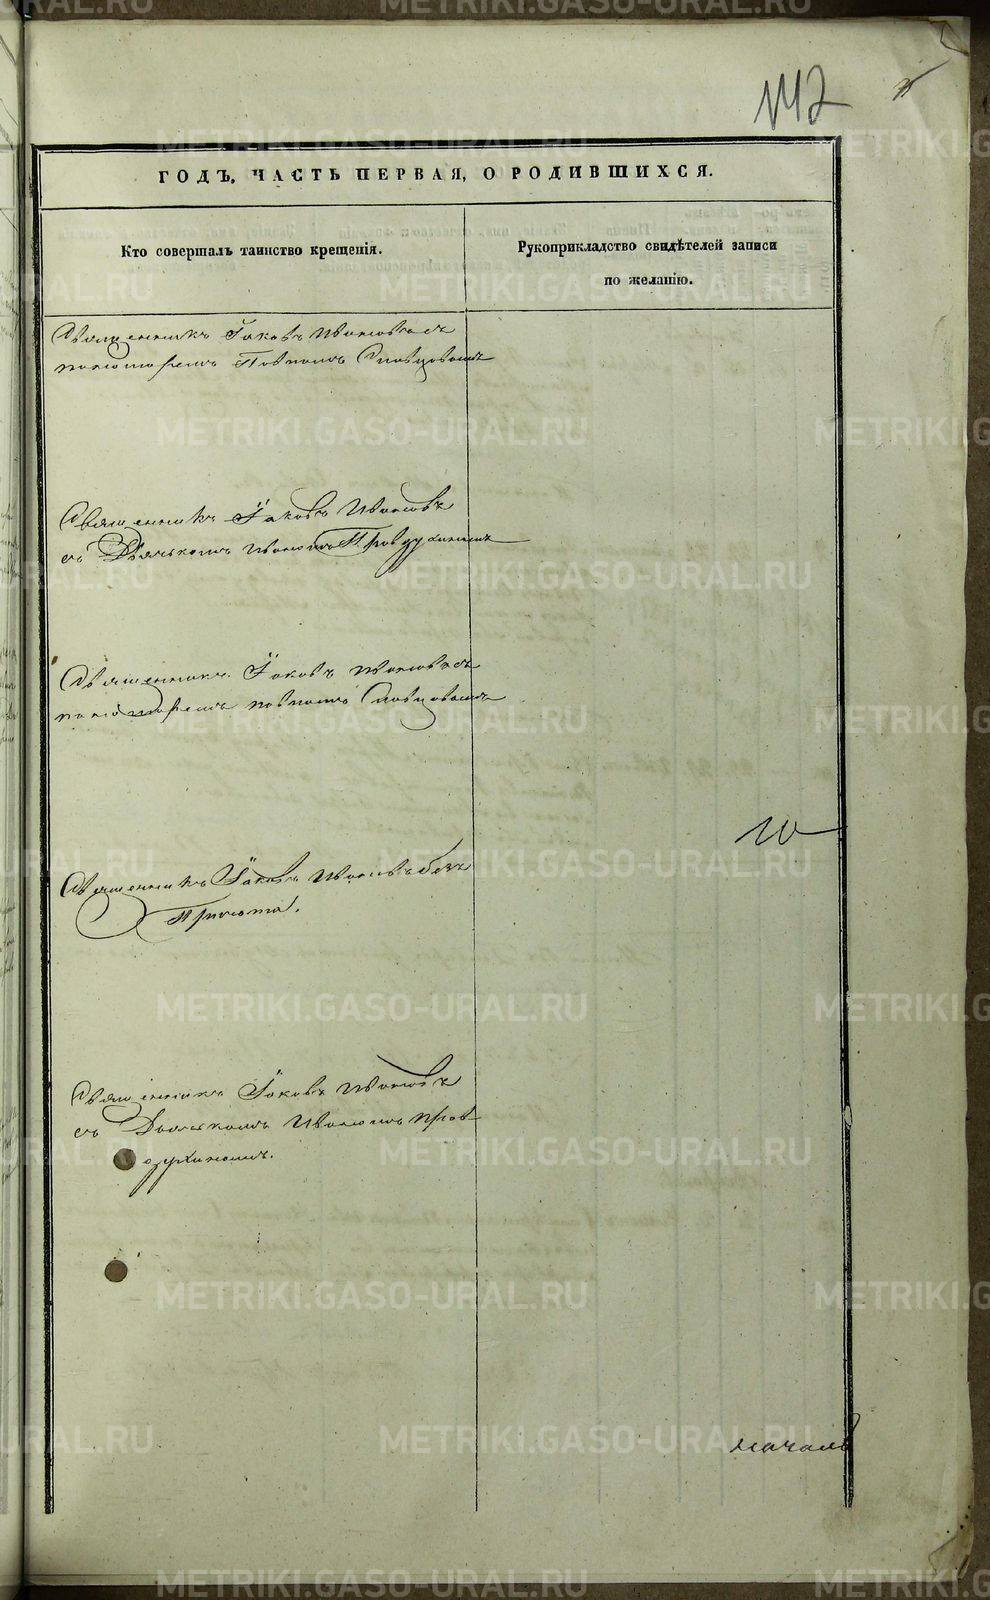 142
ГОДЪ, ЧАСТЬ ПЕРВАЯ, О РОДИВШИХСЯ.
Кто совершалъ таинство крещенія.
Рукоприкладство свидѣтелей записи
по желанію.
Священникъ Іаковъ Ивановъ съ
пономаремъ Павломъ Словцовымъ
Священникъ Іаковъ Ивановъ
съ Дьячкомъ Иваномъ
Священникъ Іаковъ Ивановъ съ
пономаремъ Павломъ Словцовымъ
Священникъ Іаковъ Ивановъ безъ
Причта.
Священникъ Іаковъ Ивановъ
съ Дьячкомъ Иваномъ
METRIKI.GASO-URAL.RU